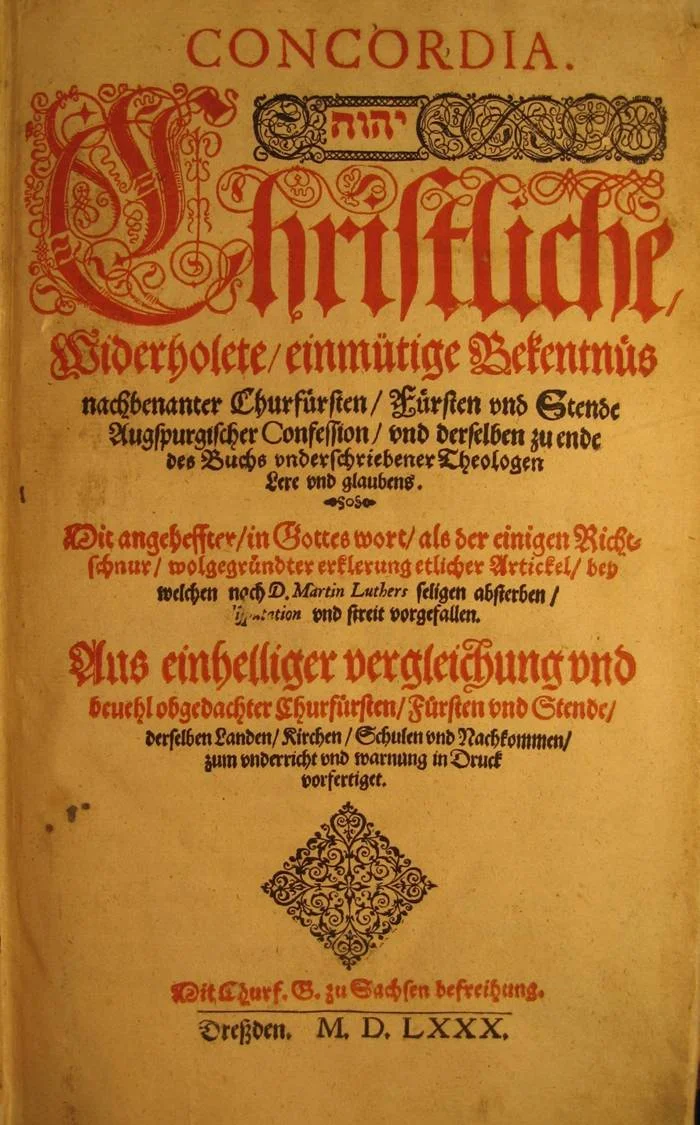 CONCORDIA.
יהוה
Christliche,
Widerholete/ einmütige Bekentnüs
nachbenanter Churfürsten/ Fürsten vnd Stende
Augspurgischer Confession/ vnd derselben zu ende
des Buchs vnderschriebener Theologen
Lere vnd glaubens.
Mit angeheffter/ in Gottes wort/ als der einigen Richt-
schnur/ wolgegründter erklerung etlicher Artickel/ bey
welchen nach D. Martin Luthers seligen absterben/
vnd streit vorgefallen.
Aus einhelliger vergleichung vnd
beuehl obgedachter Churfürsten/ Fürsten vnd Stende/
derselben Landen/ Kirchen/ Schulen vnd Nachkommen/
zum vnderricht vnd warnung in Druck
vorfertiget.
Mit Churf. G. zu Sachsen befreihung.
Dreßden. M. D. LXXX.